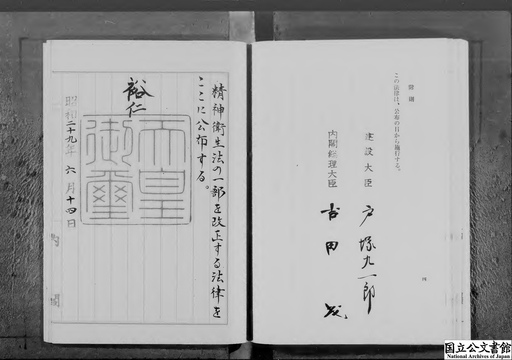 附則
この法律は、公布の日から施行する。
建設大臣 戸塚九一郎
内閣総理大臣 吉田茂
精神衛生法の一部を改正する法律を
ここに公布する。
裕仁
天皇
御璽
昭和二十九年六月十四日
国立公文書館
National Archives of Japan